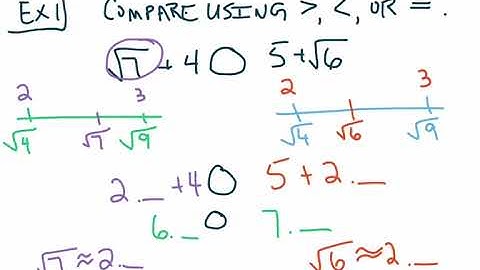 EX1 COMPARE USING >, <, OR =.
√7 + 4 ○ 5 + √6
2 3 2 3
√4 √7 √9 √4 √6 √9
2._ + 4 ○ 5 + 2._
6._ ○ 7._
√7 ≈ 2._ √6 ≈ 2._